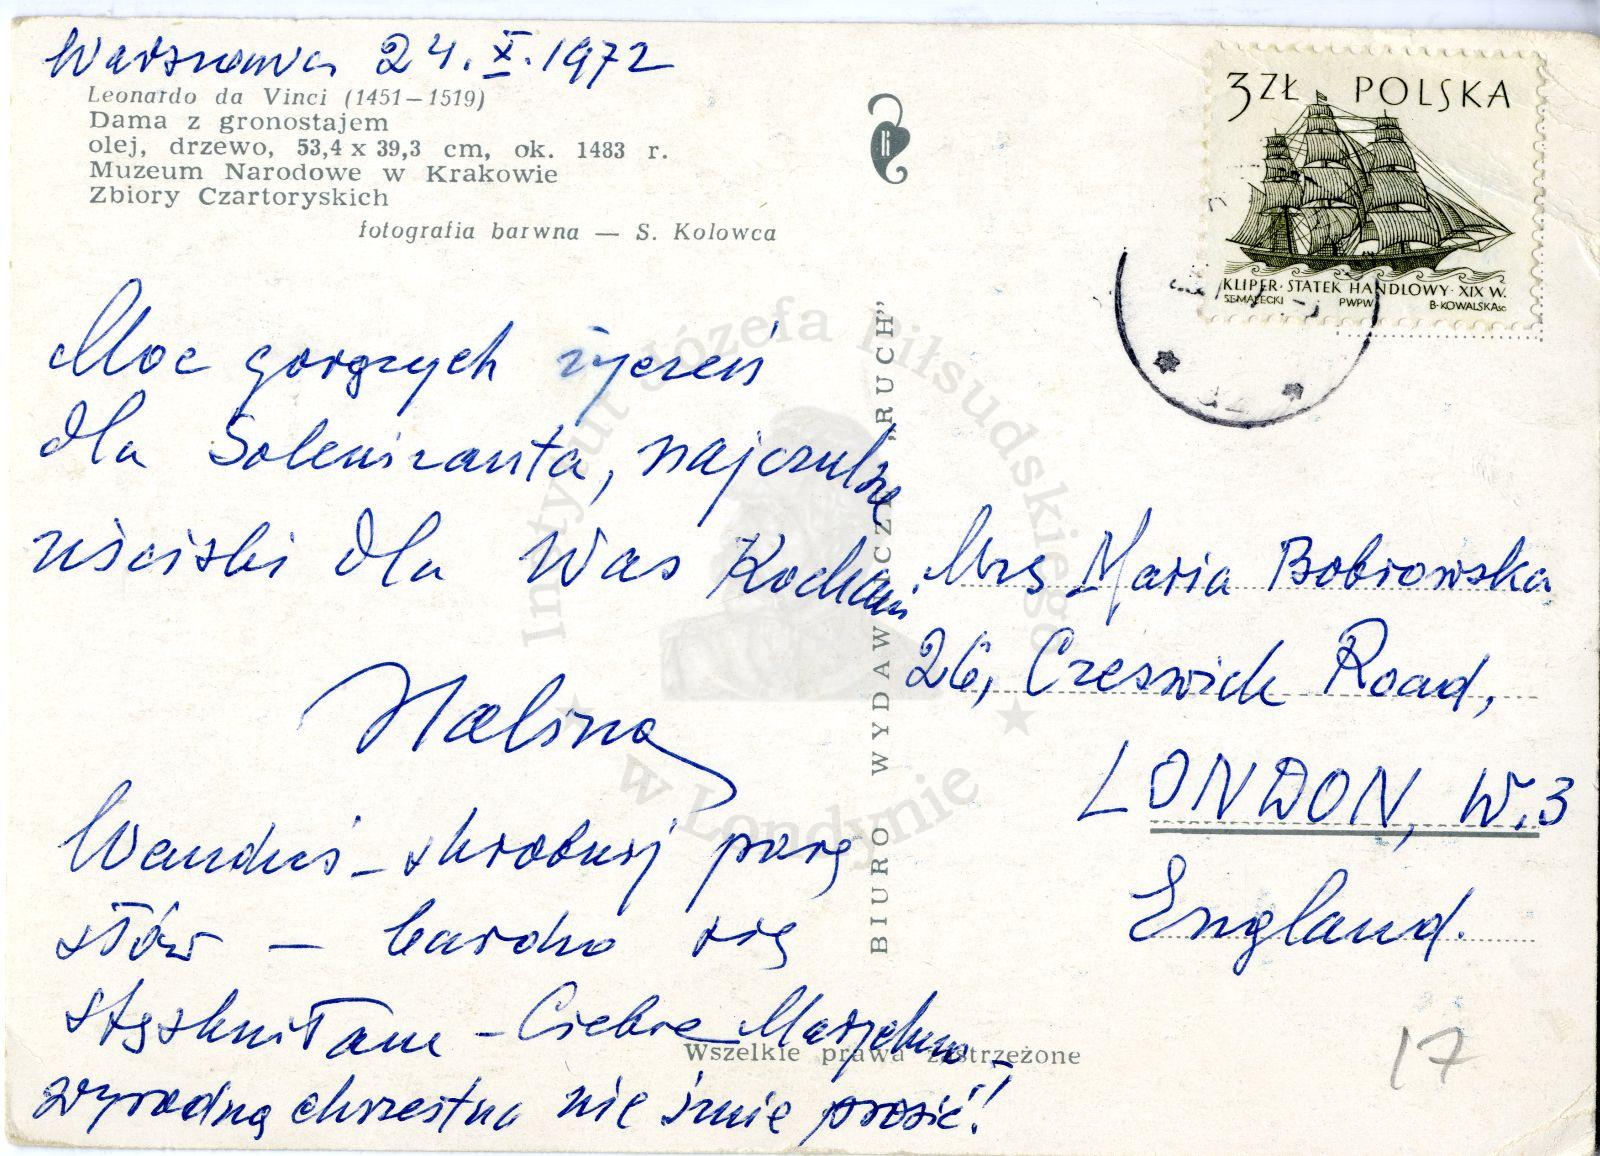 Warszawa 24.X.1972
Leonardo da Vinci (1451—1519)
Dama z gronostajem
olej, drzewo, 53,4 x 39,3 cm, ok. 1483 r.
Muzeum Narodowe w Krakowie
Zbiory Czartoryskich
fotografia barwna — S. Kolowca
Moc gorących życzeń
dla Solenizanta, najczulsze
uściski dla Was Kochani
Halina
Wanduś - skrobnij parę
słów — bardzo się
stęskniłam - Ciebie Marychno
wyrodną chrzestną nie śmię prosić!
BIURO WYDAWNICZE „RUCH"
Wszelkie prawa zastrzeżone
3 ZŁ POLSKA
KLIPER · STATEK HANDLOWY · XIX W.
S.MAŁECKI PWPW B·KOWALSKA sc
Mrs Maria Bobrowska
26, Czeswick Road,
LONDON, W.3
England.
17
Instytut Józefa Piłsudskiego
w Londynie